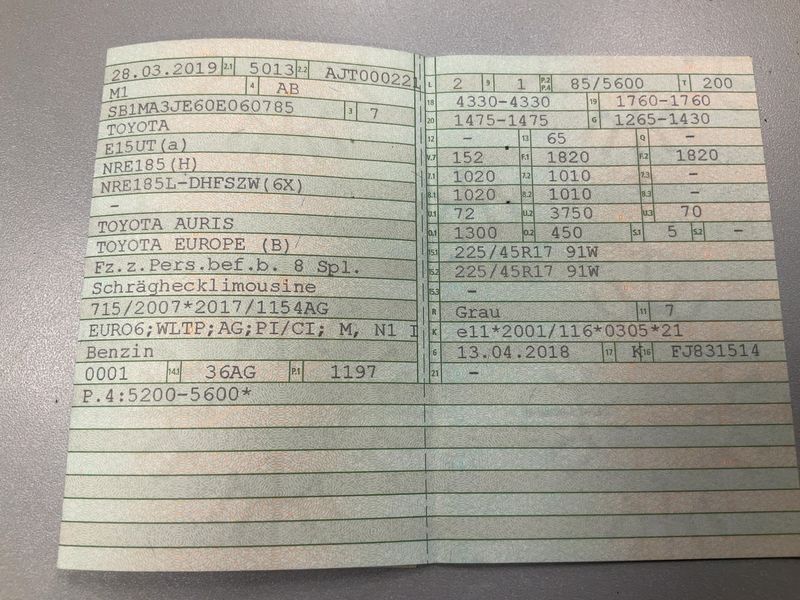 28.03.2019 2.1 5013 2.2 AJT000221
M1 4 AB
SB1MA3JE60E060785 3 7
TOYOTA
E15UT(a)
NRE185(H)
NRE185L-DHFSZW(6X)
-
TOYOTA AURIS
TOYOTA EUROPE (B)
Fz.z.Pers.bef.b. 8 Spl.
Schräghecklimousine
715/2007*2017/1154AG
EURO6;WLTP;AG;PI/CI; M, N1 I
Benzin
0001 14.1 36AG P.1 1197
P.4:5200-5600*
L 2 9 1 P.2 P.4 85/5600 T 200
18 4330-4330 19 1760-1760
20 1475-1475 G 1265-1430
12 - 13 65 Q -
V.7 152 F.1 1820 F.2 1820
7.1 1020 7.2 1010 7.3 -
8.1 1020 8.2 1010 8.3 -
U.1 72 U.2 3750 U.3 70
O.1 1300 O.2 450 S.1 5 S.2 -
15.1 225/45R17 91W
15.2 225/45R17 91W
15.3 -
R Grau 11 7
K e11*2001/116*0305*21
6 13.04.2018 17 K 16 FJ831514
21 -